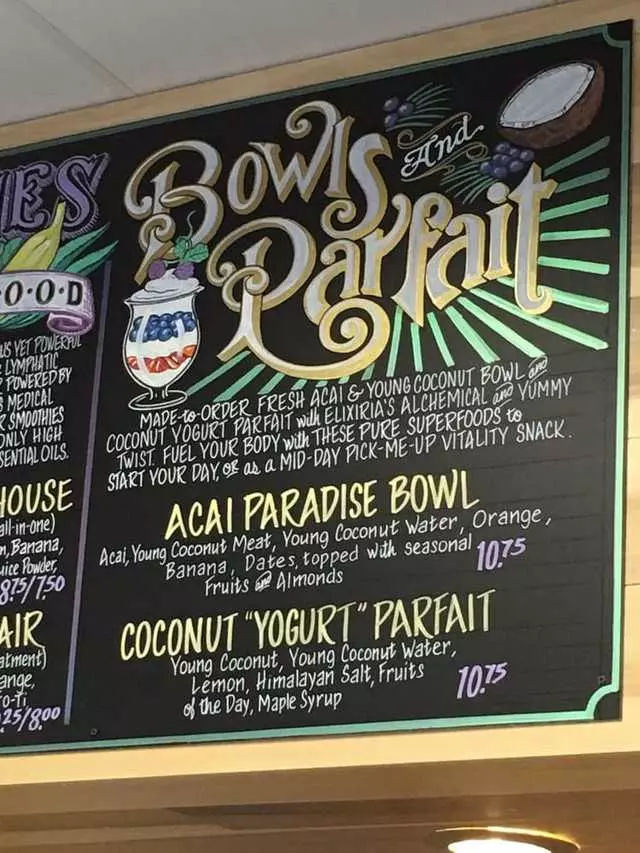 IES
O·O·D
US YET POWERFUL
LYMPHATIC
POWERED BY
MEDICAL
SMOOTHIES
ONLY HIGH
SENTIAL OILS.
HOUSE
all-in-one)
Banana,
uice Powder,
8.75/7.50
AIR
atment)
ange,
o-Ti
.25/8.00
Bowls And
Parfait
MADE-to-ORDER FRESH ACAI & YOUNG COCONUT BOWL and
COCONUT YOGURT PARFAIT with ELIXIRIA'S ALCHEMICAL and YUMMY
TWIST. FUEL YOUR BODY with THESE PURE SUPERFOODS to
START YOUR DAY, OR as a MID-DAY PICK-ME-UP VITALITY SNACK.
ACAI PARADISE BOWL
Acai, Young Coconut Meat, Young Coconut Water, Orange,
Banana, Dates, topped with seasonal 10.75
Fruits and Almonds
COCONUT "YOGURT" PARFAIT
Young Coconut, Young Coconut Water,
Lemon, Himalayan Salt, Fruits 10.75
of the Day, Maple Syrup